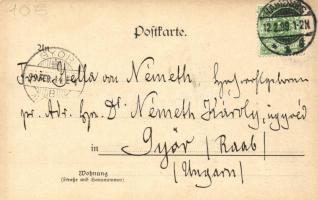 105
Postkarte.
12.2.99. 1-2N
GYŐR
An
Frau Bella von Németh Hochwohlgeboren
pr. Adr. Hrn Dr Németh Károly, ügyvéd
in Győr (Raab)
(Ungarn)
Wohnung
(Straße und Hausnummer)